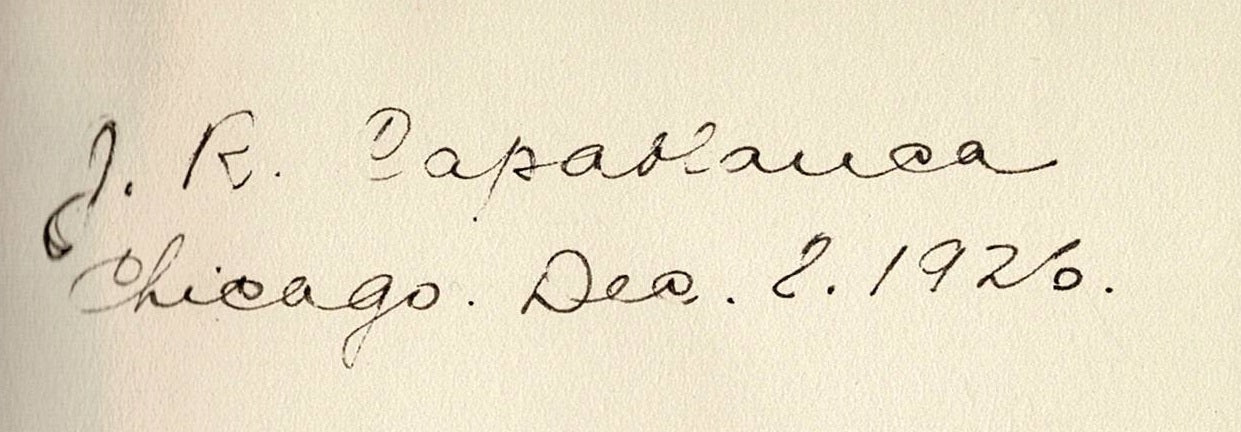 J. R. Capablanca
Chicago. Dec. 2. 1926.